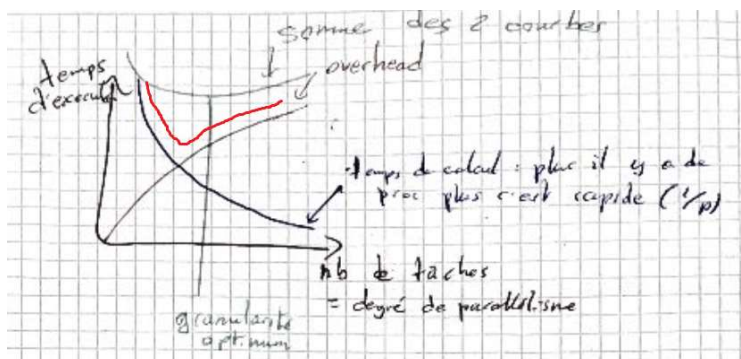 somme des 2 courbes
overhead
temps
d'execut°
temps de calcul : plus il y a de
proc plus c'est rapide (1/p)
nb de taches
= degré de parallélisme
granularité
optimum